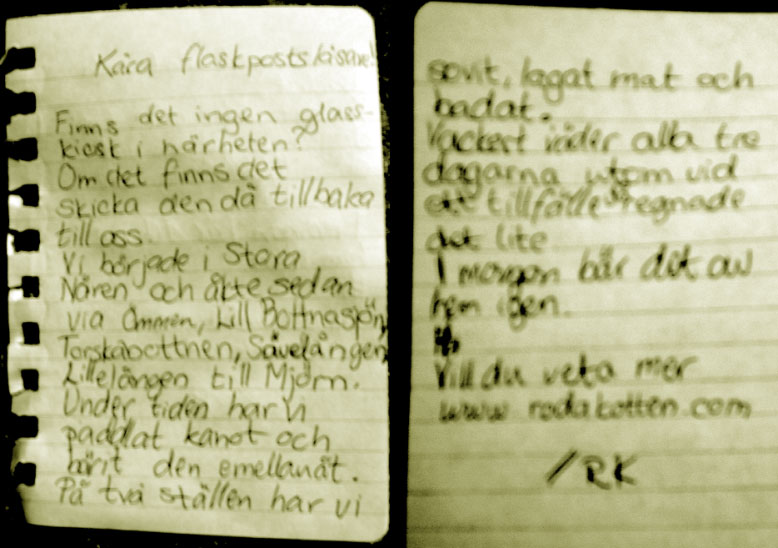 Kära flaskpostsläsare!
Finns det ingen glass-
kiosk i närheten?
Om det finns det
skicka den då tillbaka
till oss.
Vi började i Stora
Nären och åkte sedan
via Ömmen, Lill Bottnasjön,
Torskabottnen, Sävelången,
Lillelången till Mjörn.
Under tiden har vi
paddlat kanot och
bärit den emellanåt.
På två ställen har vi
sovit, lagat mat och
badat.
Vackert väder alla tre
dagarna utom vid
ett tillfälle regnade
det lite
I morgon bär det av
hem igen.
Vill du veta mer
www.rodakotten.com
/RK